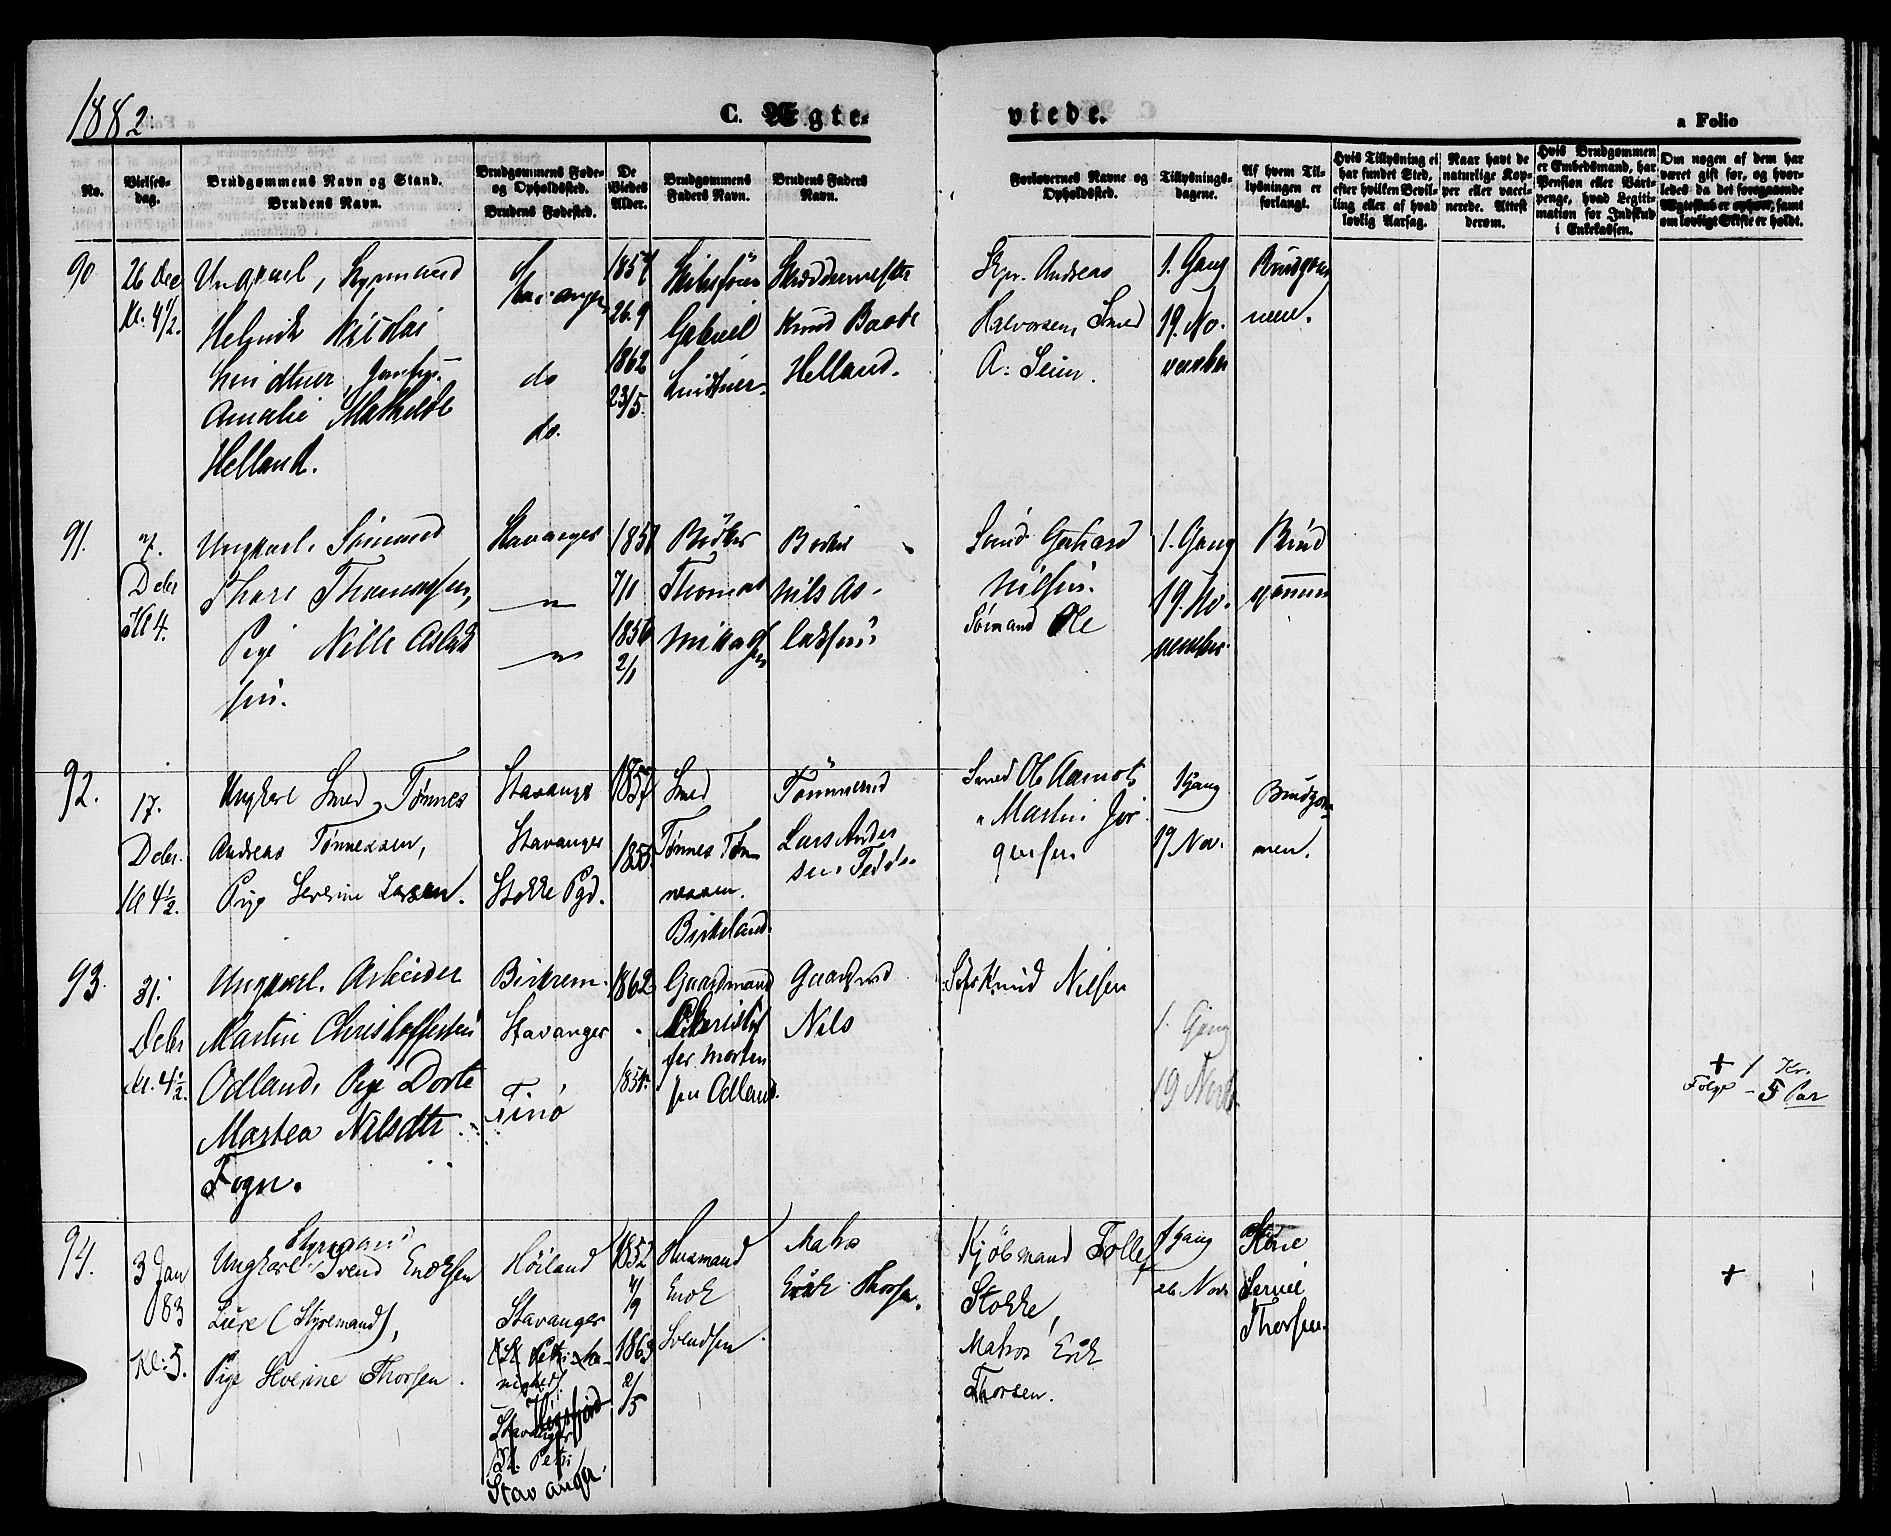 1882.
C. Ægte=
viede.
a Folio
No.
Vielses-
dag.
Brudgommens Navn og Stand.
Brudens Navn.
Brudgommens Føde-
og Opholdssted.
Brudens Fødested.
De
Viedes
Alder.
Brudgommens
Faders Navn.
Brudens Faders
Navn.
Forlovernes Navne og
Opholdssted.
Tillysnings-
dagene.
Af hvem Til-
lysningen er
forlangt.
Hvis Tillysning ei
har fundet Sted,
efter hvilken Bevil-
ling eller af hvad
lovlig Aarsag.
Naar havt de
naturlige Kop-
per eller vacci-
nerede. Attest
derom.
Hvis Brudgommen
er Embedsmand, har
Pension eller Vart-
penge, hvad Legiti-
mation for Indskud
i Enkekassen.
Om nogen af dem har
været gift før, og hvor-
ledes da det foregaaende
Ægteskab er ophævet, samt
om lovligt Skifte er holdt.
90
26 Dec
Kl. 4 1/2.
Ungkarl,
Helmik Nicolai
Lindtner,
Amalie Mathilde
Helland.
Stavanger
do
do.
1857
26. 9
1862
23/5.
Gabriel
Lindtner.
Skræddermester
Knud Baade
Helland.
Skpr. Andreas
Halvorsen, Smed
A: Seim.
1. Gang
19. No-
vember
Brudgom
men.
91.
Deber
Kl 4.
Ungkarl. Sømand
Thore Thomassen,
Pige Nille Aslak
sen.
Stavanger
"
"
1857
7/1
1856
2/1
Bødker
Thomas
Bødker
Nils As-
laksen
Gerhard
Nilsen.
Sømand Ole
1. Gang
19. No-
vember.
Brud
gommen
92.
17.
Debr.
Kl 4 1/2.
Ungkarl Smed, Tønnes
Andreas Tønnessen,
Pige Severine Larsen.
Stavanger
Stavanger
Stokke Pgd.
1857
1855.
Smed
Tønnes Tøn
nessen.
Birkeland.
Tømmermd
Lars Ander
sen
Smed Ole Aamots
" Martin Jør
gensen
1 Gang
19 Nov.
Brudgom
men.
93.
31.
Debr
Kl. 4 1/2.
Ungkarl. Arbeider
Martin Christoffersen
Odland, Pige Dorte
Martea Nilsdtr
Fogn.
Birkrem.
Stavanger
Finø
1862
1854.
Gaardmand
Christof
fer Morten
sen Odland.
Gaardmd
Nils
Knud Nilsen
1. Gang
19 Novb.
+ 1 Kr.
Følge - 5 Par
94.
3 Jan
83
Kl: 5.
Styrmand
Ungkarl Svend Enoksen
Lure (Styremand),
Pige Severine Thorsen.
Høiland
Stavanger
Stavanger
St. Petri
Stavanger.
1852
4/9
1863
2/5
Husmand
Enok
Svendsen.
Matros
Erik Thorsen.
Kjøbmand Tollef
Stokke,
Matros Erik
Thorsen.
1 Gang
Nov.
Thorsen.
+